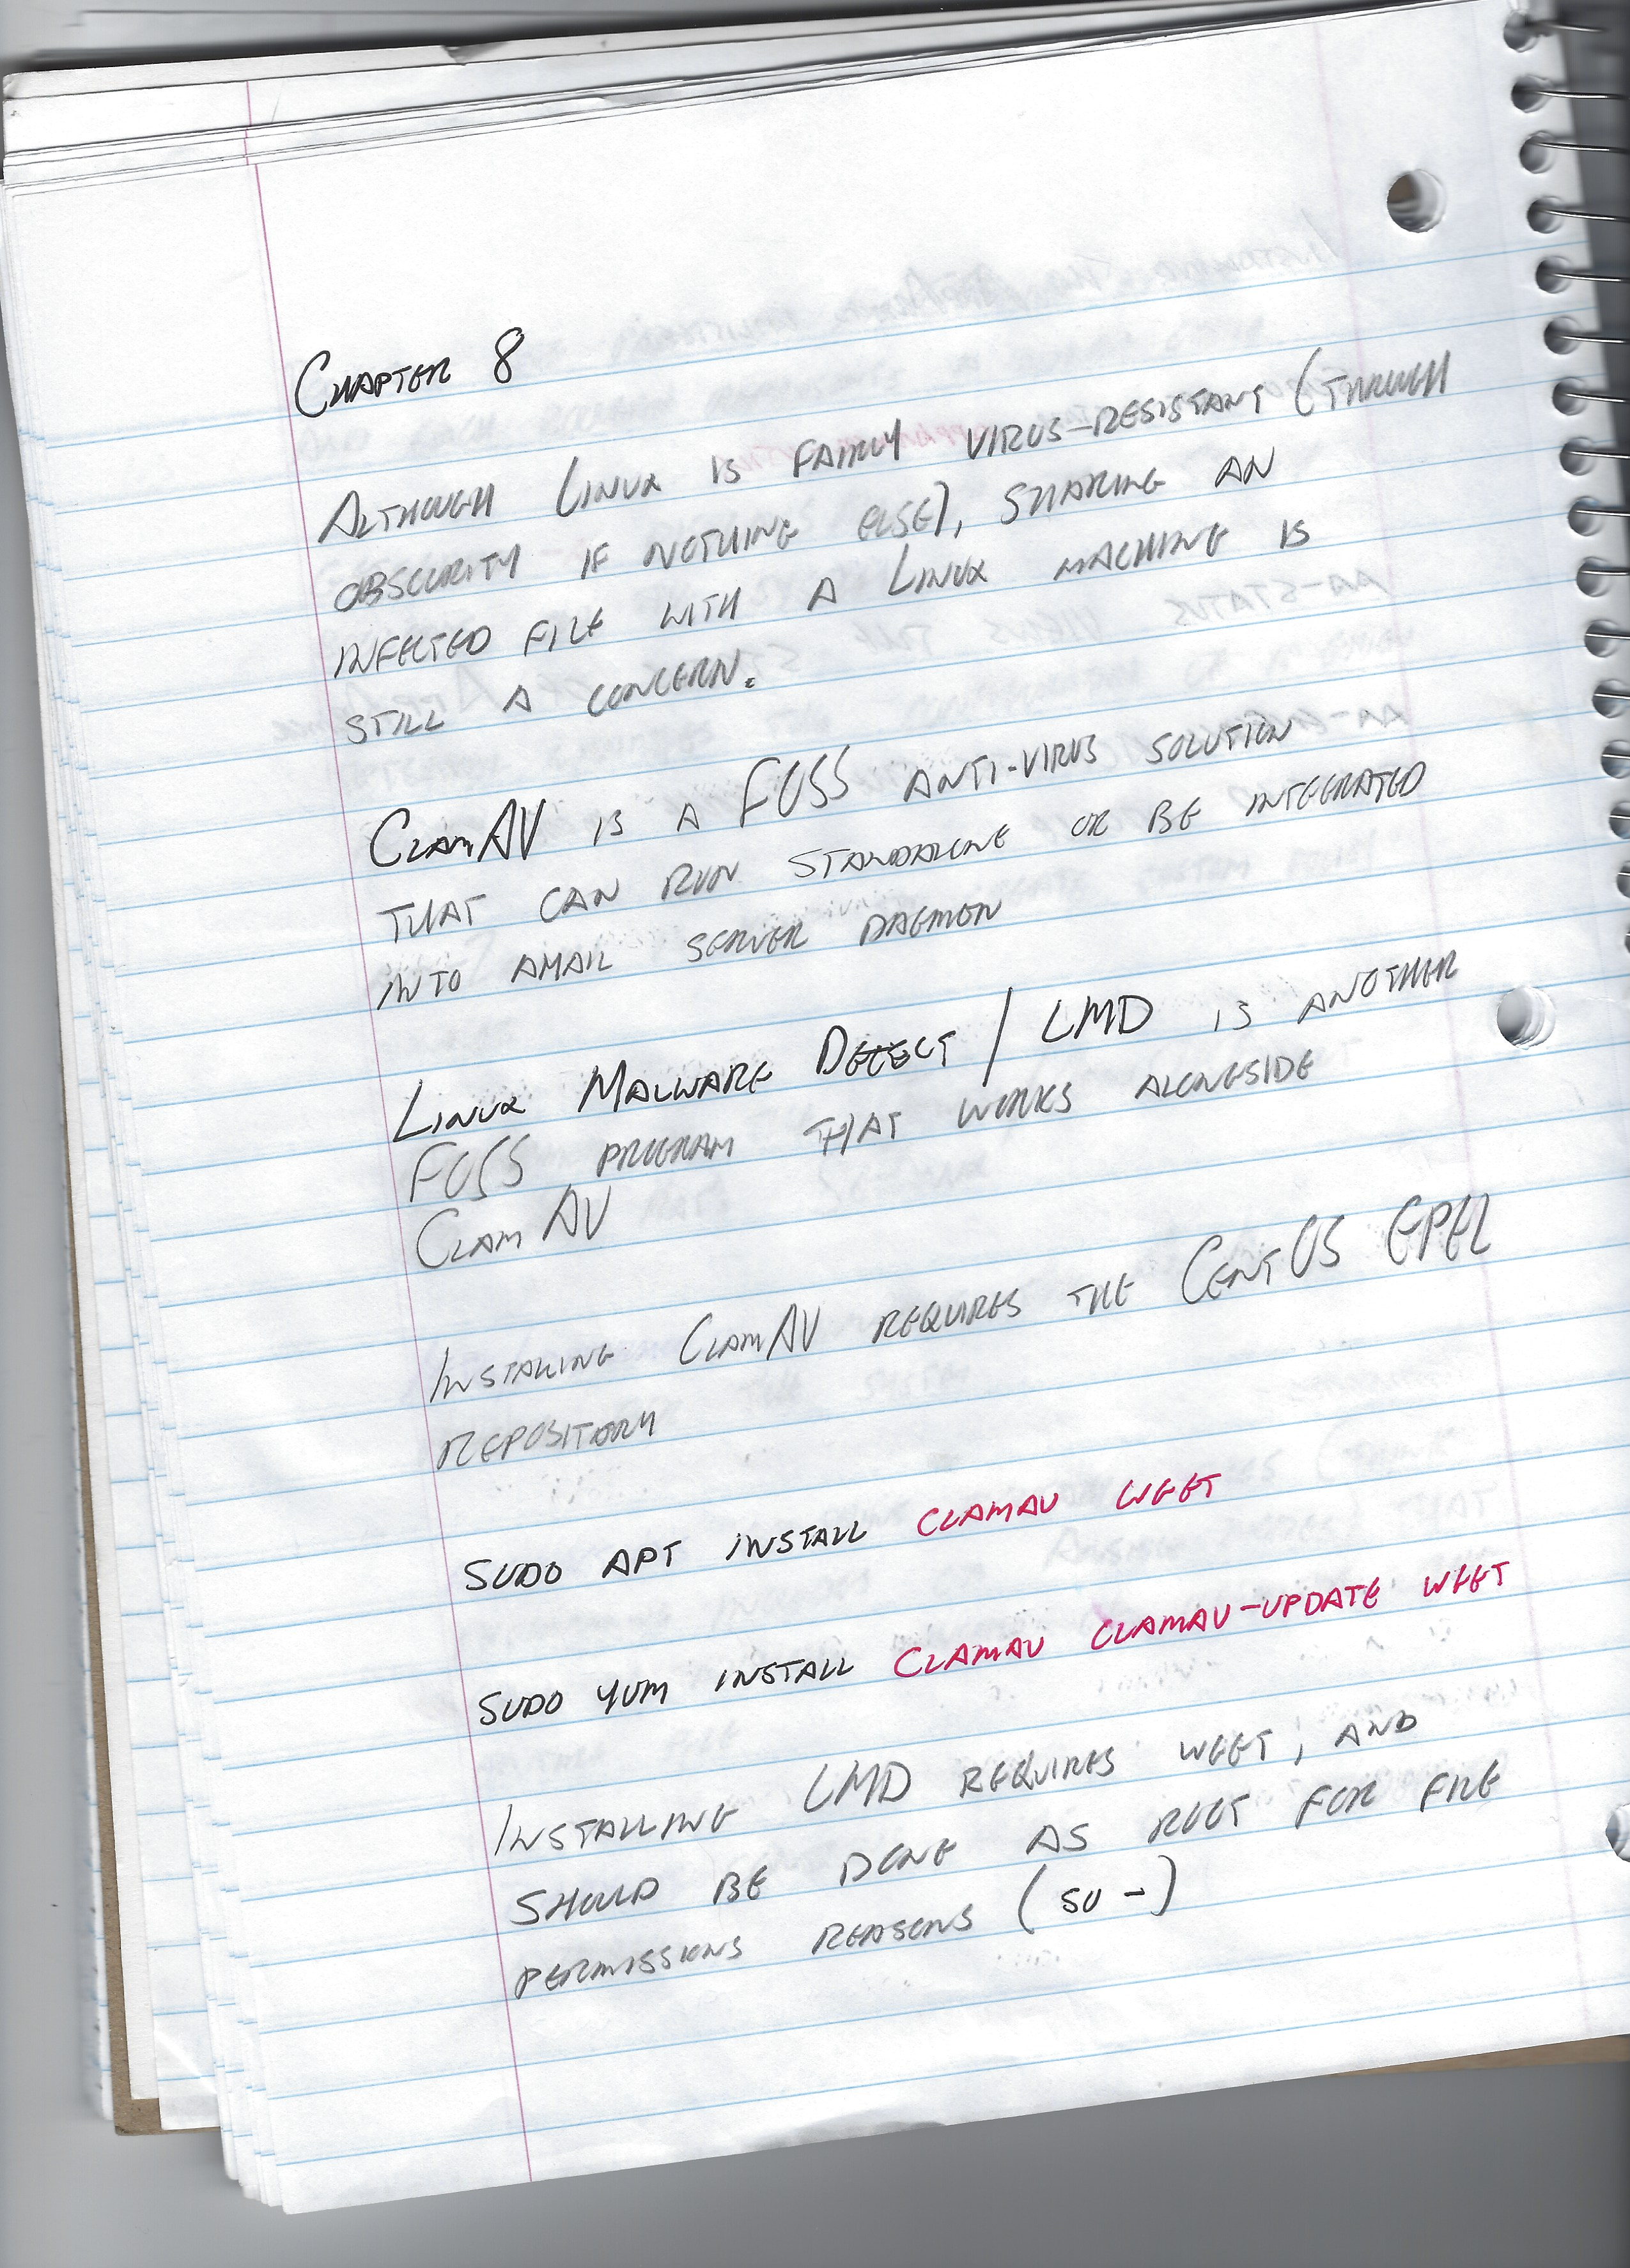 CHAPTER 8
ALTHOUGH LINUX IS FAIRLY VIRUS-RESISTANT (THROUGH
OBSCURITY IF NOTHING ELSE), SHARING AN
INFECTED FILE WITH A LINUX MACHINE IS
STILL A CONCERN.
CLAMAV IS A FOSS ANTI-VIRUS SOLUTION
THAT CAN RUN STANDALONE OR BE INTEGRATED
INTO AMAIL SERVER DAEMON
LINUX MALWARE DETECT / LMD IS ANOTHER
FOSS PROGRAM THAT WORKS ALONGSIDE
CLAMAV
INSTALLING CLAMAV REQUIRES THE CENTOS EPEL
REPOSITORY
SUDO APT INSTALL CLAMAV WGET
SUDO YUM INSTALL CLAMAV CLAMAV-UPDATE WGET
INSTALLING LMD REQUIRES WGET, AND
SHOULD BE DONE AS ROOT FOR FILE
PERMISSIONS REASONS (SU -)